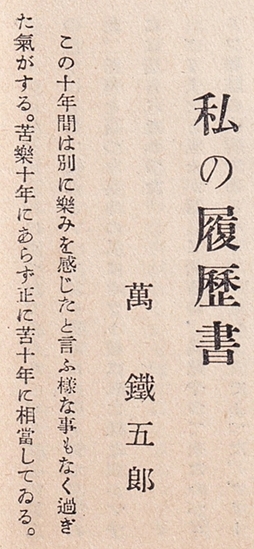 私の履歷書
萬 鐵五郎
この十年間は別に樂みを感じたと言ふ樣な事もなく過ぎ
た氣がする。苦樂十年にあらず正に苦十年に相當してゐる。